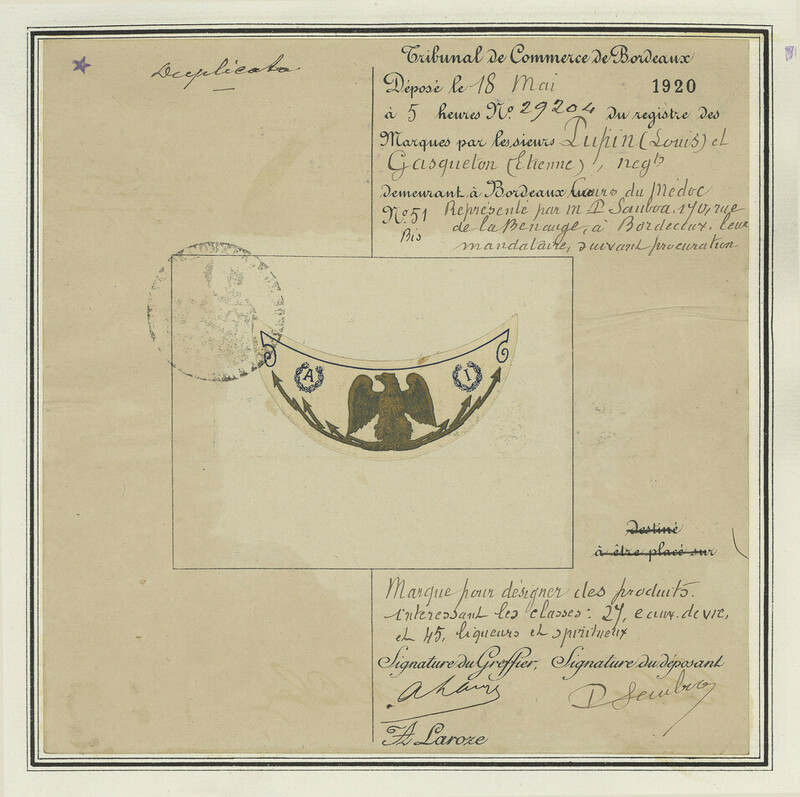 Duplicata
Tribunal de Commerce de Bordeaux
Déposé le 18 Mai 1920
à 5 heures No. 29204 du registre des
Marques par les sieurs Pupin (Louis) et
Gasqueton (Etienne), negts
demeurant à Bordeaux Cours du Médoc
No. 51 Bis
Représenté par M P Sauboa. 170, rue
de la Benauge, à Bordeaux. leur
mandataire, suivant procuration
A I
Destiné
à être placé sur
Marque pour désigner des produits.
intéressant les classes: 27, eaux. de vie,
et 45, liqueurs et spiritueux
Signature du Greffier, Signature du déposant
Laroze